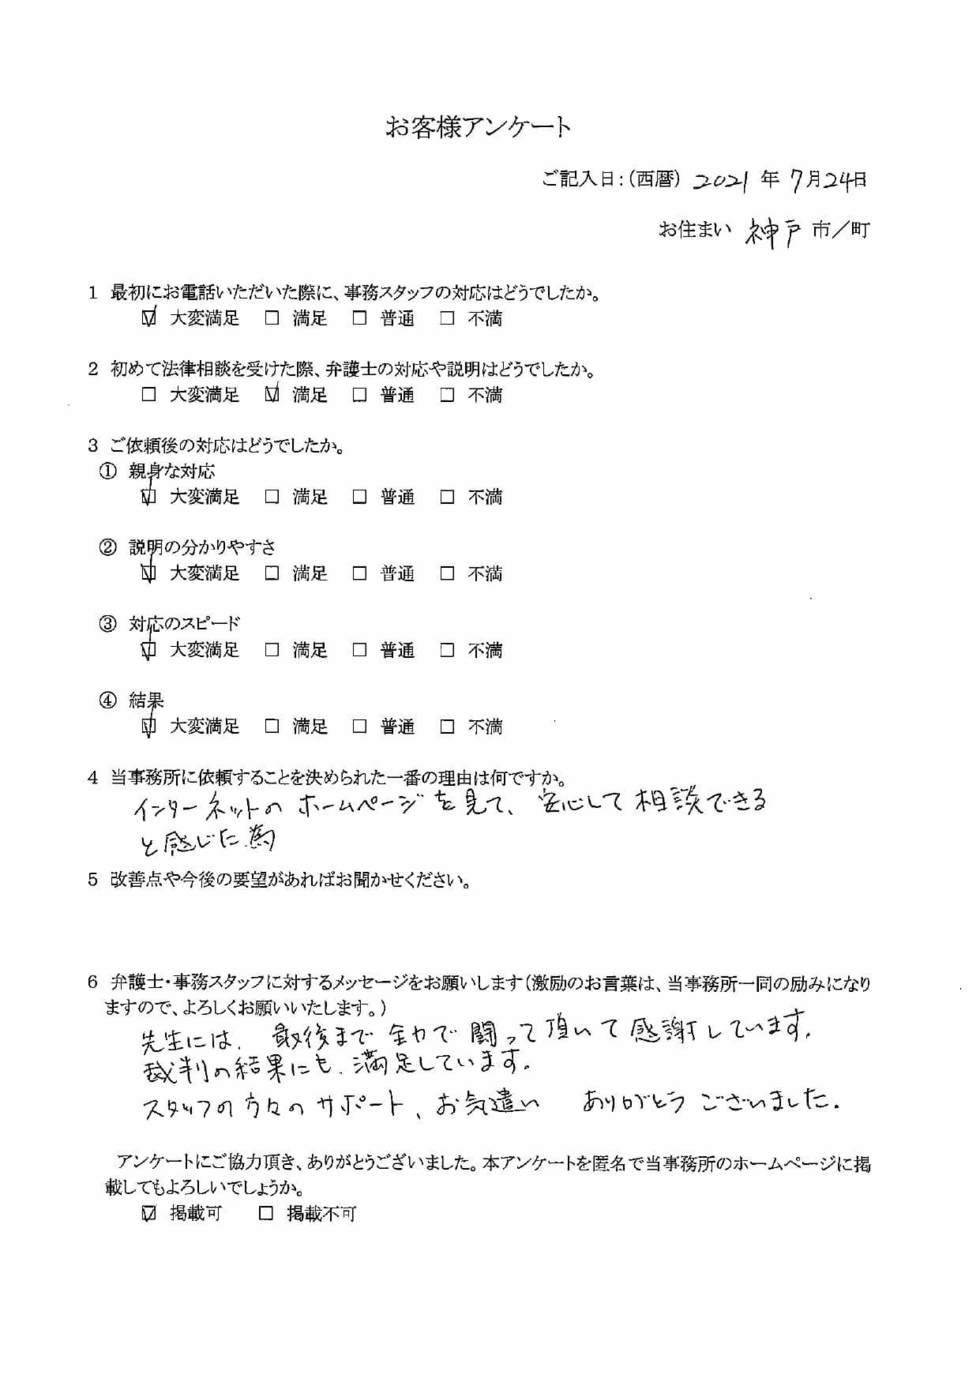 お客様アンケート
ご記入日:(西暦) 2021 年 7月24日
お住まい 神戸 市/町
1 最初にお電話いただいた際に、事務スタッフの対応はどうでしたか。
☑ 大変満足 □ 満足 □ 普通 □ 不満
2 初めて法律相談を受けた際、弁護士の対応や説明はどうでしたか。
□ 大変満足 ☑ 満足 □ 普通 □ 不満
3 ご依頼後の対応はどうでしたか。
① 親身な対応
☑ 大変満足 □ 満足 □ 普通 □ 不満
② 説明の分かりやすさ
☑ 大変満足 □ 満足 □ 普通 □ 不満
③ 対応のスピード
☑ 大変満足 □ 満足 □ 普通 □ 不満
④ 結果
☑ 大変満足 □ 満足 □ 普通 □ 不満
4 当事務所に依頼することを決められた一番の理由は何ですか。
インターネットのホームページを見て、安心して相談できる
と感じた為
5 改善点や今後の要望があればお聞かせください。
6 弁護士・事務スタッフに対するメッセージをお願いします(激励のお言葉は、当事務所一同の励みになり
ますので、よろしくお願いいたします。)
先生には、最後まで全力で闘って頂いて感謝しています。
裁判の結果にも、満足しています。
スタッフの方々のサポート、お気遣い ありがとうございました。
アンケートにご協力頂き、ありがとうございました。本アンケートを匿名で当事務所のホームページに掲
載してもよろしいでしょうか。
☑ 掲載可 □ 掲載不可